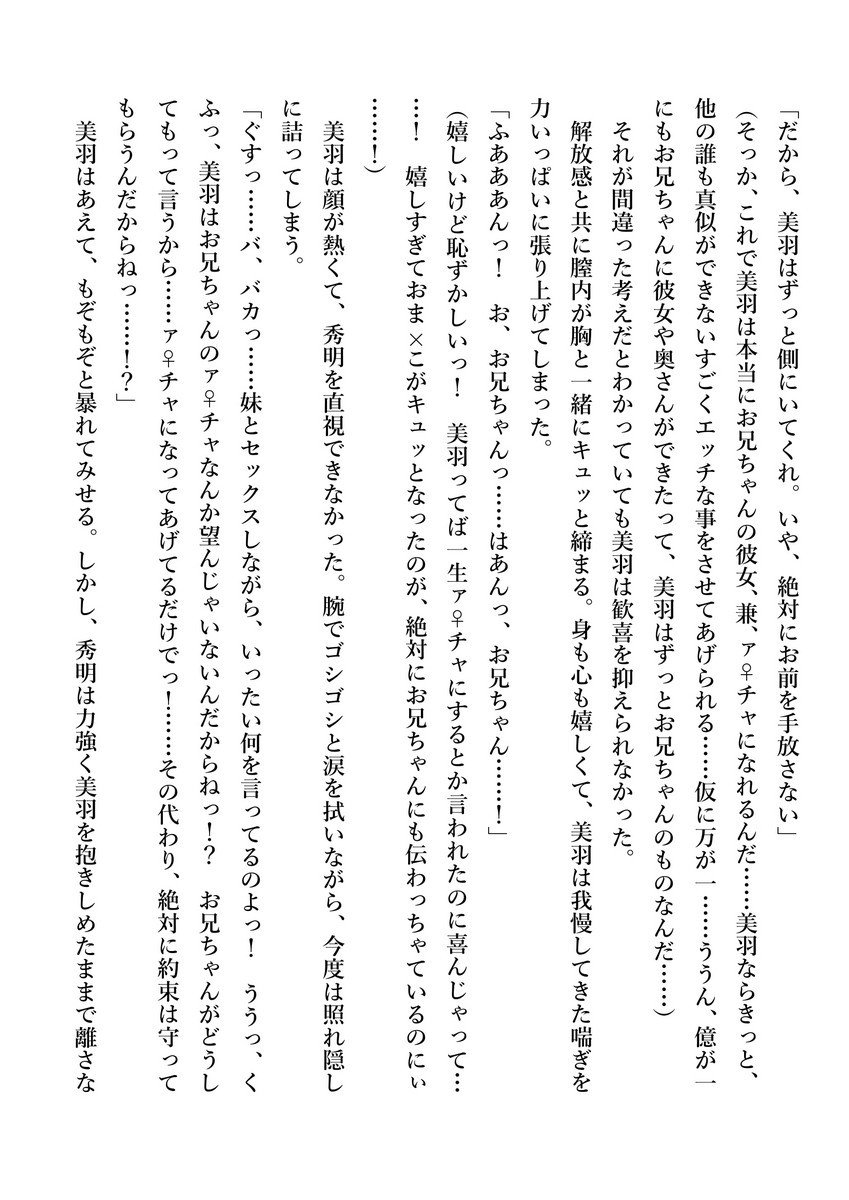 「だから、美羽はずっと側にいてくれ。いや、絶対にお前を手放さない」
（そっか、これで美羽は本当にお兄ちゃんの彼女、兼、ァ♀チャになれるんだ……美羽ならきっと、
他の誰も真似ができないすごくエッチな事をさせてあげられる……仮に万が一……ううん、億が一
にもお兄ちゃんに彼女や奥さんができたって、美羽はずっとお兄ちゃんのものなんだ……）
それが間違った考えだとわかっていても美羽は歓喜を抑えられなかった。
解放感と共に膣内が胸と一緒にキュッと締まる。身も心も嬉しくて、美羽は我慢してきた喘ぎを
力いっぱいに張り上げてしまった。
「ふあああんっ！　お、お兄ちゃんっ……はあんっ、お兄ちゃん……！」
（嬉しいけど恥ずかしいっ！　美羽ってば一生ァ♀チャにするとか言われたのに喜んじゃって…
…！　嬉しすぎておま×こがキュッとなったのが、絶対にお兄ちゃんにも伝わっちゃているのにぃ
……！）
美羽は顔が熱くて、秀明を直視できなかった。腕でゴシゴシと涙を拭いながら、今度は照れ隠し
に詰ってしまう。
「ぐすっ……バ、バカっ……妹とセックスしながら、いったい何を言ってるのよっ！　ううっ、く
ふっ、美羽はお兄ちゃんのァ♀チャなんか望んじゃいないんだからねっ！？　お兄ちゃんがどうし
てもって言うから……ァ♀チャになってあげてるだけでっ！……その代わり、絶対に約束は守って
もらうんだからねっ……！？」
美羽はあえて、もぞもぞと暴れてみせる。しかし、秀明は力強く美羽を抱きしめたままで離さな